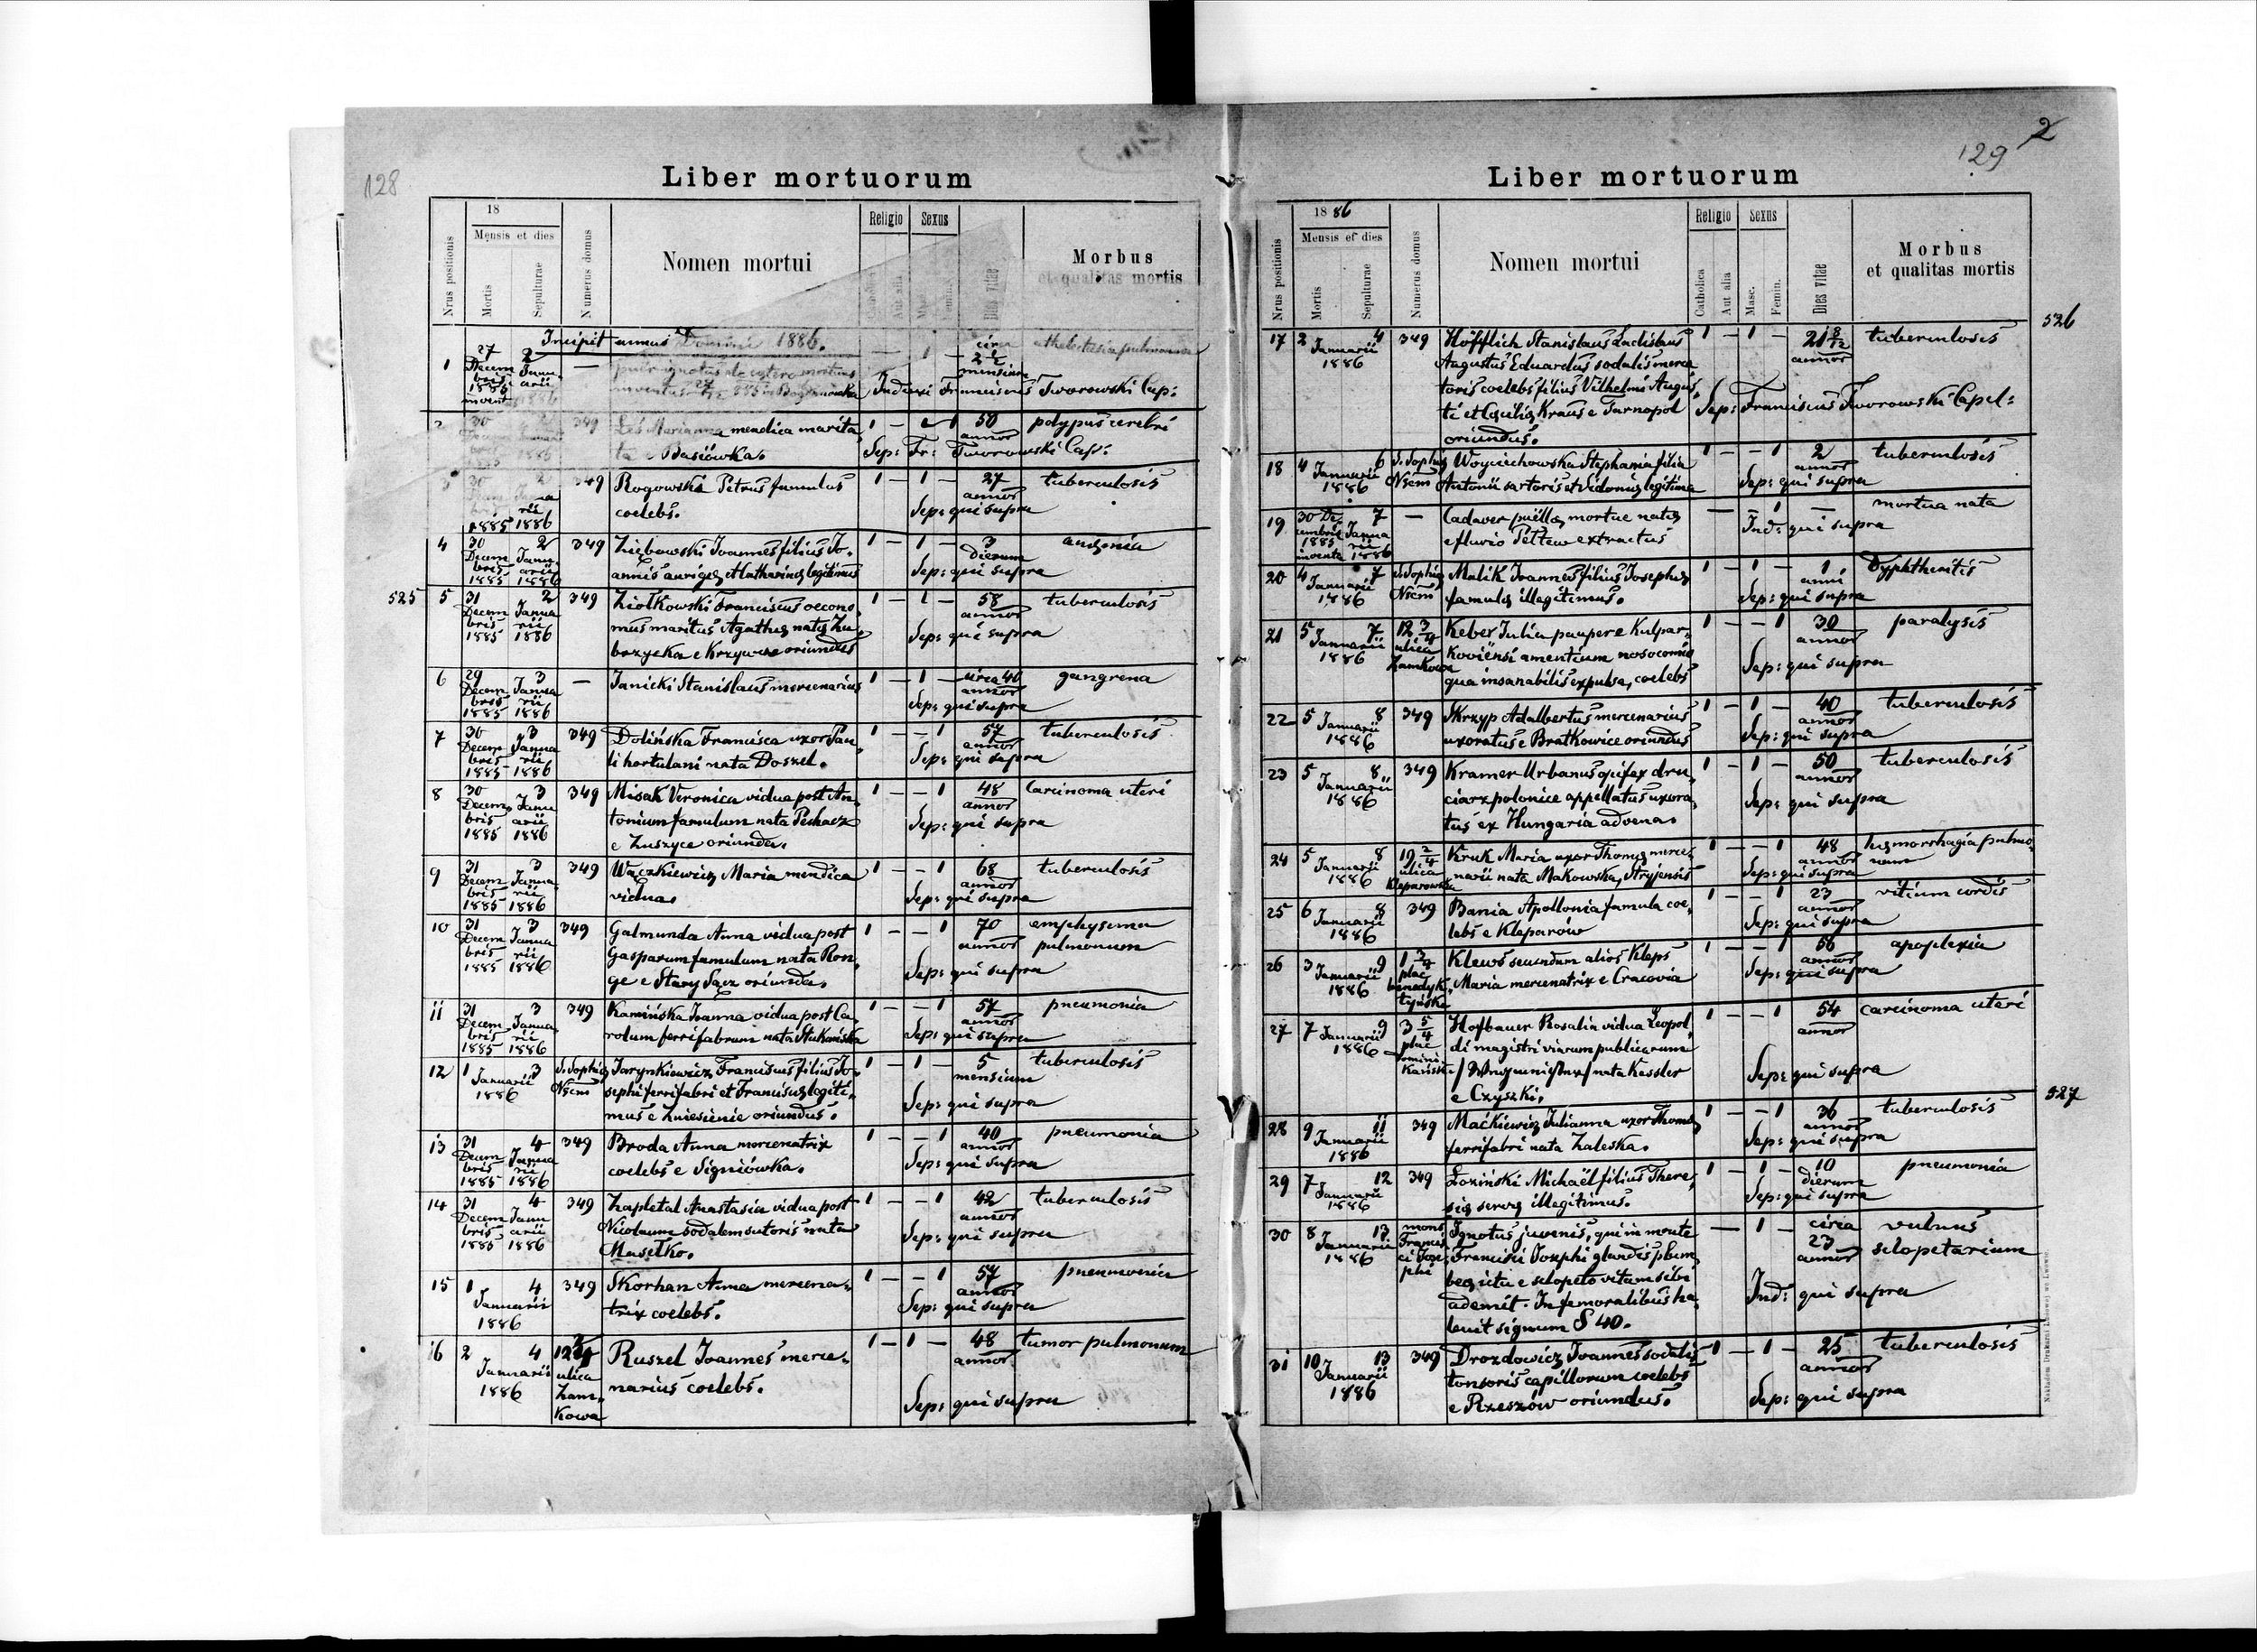 128
Liber mortuorum
18
Mensis et dies
Nrus positionis
Mortis
Sepulturae
Numerus domus
Nomen mortui
Religio
Sexus
Dies vitae
Morbus
et qualitas mortis
Incipit annus Domini 1886.
1 27 Decembris 1885 invent 2 Januarii 1886 — puer ignotus de utero mortuus — 1 circa 2 1/2 mensium
Induxi Franciscus Tworowski Cap:
2 30 349 Leś Marianna mendica marita 1 — — 1 50 annor polypus cerebri
ta e Basiówka. Sep: Fr: Tworowski Cap:
3 30 1885 2 Januarii 1886 349 Rogowski Petrus famulus 1 — 1 — 27 annor tuberculosis
coelebs. Sep: qui supra
4 30 Decembris 1885 2 Januarii 1886 349 Ziębowski Joannes filius Jo- 1 — 1 — 3 dierum anæmia
annis aurigæ et Catharinæ legitimus Sep: qui supra
525 5 31 Decembris 1885 2 Januarii 1886 349 Ziołkowski Franciscus oecono- 1 — 1 — 58 annor tuberculosis
mus maritus Agathæ natæ Zu-
brzycka e Krzywcze oriundus Sep: qui supra
6 29 Decembris 1885 3 Januarii 1886 — Janicki Stanislaus mercenarius 1 — 1 — circa 40 annor gangrena
Sep: qui supra
7 30 Decembris 1885 3 Januarii 1886 349 Dolińska Francisca uxor Pau- 1 — — 1 57 annor tuberculosis
li hortulani nata Doszel. Sep: qui supra
8 30 Decembris 1885 3 Januarii 1886 349 Misak Veronica vidua post An- 1 — — 1 48 annor Carcinoma uteri
tonium famulum nata Pechacz
e Zuszyce oriunda. Sep: qui supra
9 31 Decembris 1885 3 Januarii 1886 349 Waczkiewicz Maria mendica 1 — — 1 68 annor tuberculosis
vidua. Sep: qui supra
10 31 Decembris 1885 3 Januarii 1886 349 Galmunda Anna vidua post 1 — — 1 70 annor emphysema
Gasparum famulum nata Ron- pulmonum
ge e Stary Sącz oriunda. Sep: qui supra
11 31 Decembris 1885 3 Januarii 1886 349 Kamińska Joanna vidua post Ca- 1 — — 1 57 annor pneumonia
rolum ferrifabrum nata Stukańska Sep: qui supra
12 1 Januarii 1886 3 S. Sophiæ Nsem Jarynkiewicz Franciscus filius Jo- 1 — 1 — 5 mensium tuberculosis
sephi ferrifabri et Franciscæ legiti-
mus e Zniesienie oriundus. Sep: qui supra
13 31 Decembris 1885 4 Januarii 1886 349 Broda Anna mercenatrix 1 — — 1 40 annor pneumonia
coelebs e Signiówka. Sep: qui supra
14 31 Decembris 1885 4 Januarii 1886 349 Zapletal Anastasia vidua post 1 — — 1 42 annor tuberculosis
Nicolaum sodalem sutoris nata
Musetko. Sep: qui supra
15 1 Januarii 1886 4 349 Skorhan Anna mercena- 1 — — 1 57 annor pneumonia
trix coelebs. Sep: qui supra
16 2 Januarii 1886 4 12 3/4 ulica Zamkowa Ruszel Joannes merce- 1 — 1 — 48 annor tumor pulmonum
narius coelebs. Sep: qui supra
129 2
Liber mortuorum
1886
Mensis et dies
Nrus positionis
Mortis
Sepulturae
Numerus domus
Nomen mortui
Religio
Catholica
Aut alia
Sexus
Masc.
Femin.
Dies vitae
Morbus
et qualitas mortis
526
17 2 Januarii 1886 4 349 Höfflich Stanislaus Ladislaus 1 — 1 — 21 8/12 annor tuberculosis
Augustus Eduardus sodalis merca
toris coelebs filius Vilhelmi Augus-
ti et Cæciliæ Kraus e Tarnopol Sep: Franciscus Tworowski Capel:
oriundus.
18 4 Januarii 1886 6 S. Sophiæ Nsem Woyciechowska Stephania filia 1 — — 1 2 annor tuberculosis
Antonii sartoris et Sidoniæ legitima Sep: qui supra
19 30 Decembris 1885 inventa 7 Januarii 1886 — Cadaver puellæ mortue natæ — — 1 — mortua nata
e fluvio Pettew extractus Ind: qui supra
20 4 Januarii 1886 7 S. Sophiæ Nsem Malik Joannes filius Josephæ 1 — 1 — 1 anni Dyphtheritis
famulæ illegitimus. Sep: qui supra
21 5 Januarii 1886 7 12 3/4 ulica Zamkowa Keber Julia paupere Kulpar- 1 — — 1 30 annor paralysis
koviensi amentium nosocomio
qua insanabilis expulsa, coelebs Sep: qui supra
22 5 Januarii 1886 8 349 Skrzyp Adalbertus mercenarius 1 — 1 — 40 annor tuberculosis
uxoratus e Bratkowice oriundus Sep: qui supra
23 5 Januarii 1886 8 349 Kramer Urbanus opifex dru- 1 — 1 — 50 annor tuberculosis
ciarz polonice appellatus uxora-
tus ex Hungaria advena. Sep: qui supra
24 5 Januarii 1886 8 19 2/4 ulica Kleparowska Kruk Maria uxor Thomæ merce- 1 — — 1 48 annor hæmorrhagia pulmo-
narii nata Makowska, Stryjensis Sep: qui supra num
25 6 Januarii 1886 8 349 Bania Apollonia famula coe- 1 — — 1 23 annor vitium cordis
lebs e Kleparow Sep: qui supra
26 3 Januarii 1886 9 plac benedyktyński Klews secundum alios Kleps 1 — — 1 56 annor apoplexia
Maria mercenatrix e Cracovia Sep: qui supra
27 7 Januarii 1886 9 3 5/4 plac Hofbauer Rosalia vidua Leopol- 1 — — 1 54 annor carcinoma uteri
di magistri viarum publicarum
nata Kessler
e Czyszki. Sep: qui supra
527
28 9 Januarii 1886 11 349 Maćkiewicz Julianna uxor Thomæ 1 — — 1 36 annor tuberculosis
ferrifabri nata Zaleska. Sep: qui supra
29 7 Januarii 1886 12 349 Łoziński Michaël filius There- 1 — 1 — 10 dierum pneumonia
siæ servæ illegitimus. Sep: qui supra
30 8 Januarii 1886 13 mons Francisci Josephi Ignotus juvenis, qui in monte — 1 — circa 23 annor vulnus
Francisci Josephi glandis plum- sclopetarium
beæ ictu e sclopeto vitam sibi
ademit. In femoralibus ha- Ind: qui supra
buit signum S 40.
31 10 Januarii 1886 13 349 Drozdowicz Joannes sodalis 1 — 1 — 25 annor tuberculosis
tonsoris capillorum coelebs
e Rzeszów oriundus. Sep: qui supra
Nakładem Drukarni Ludowej we Lwowie.